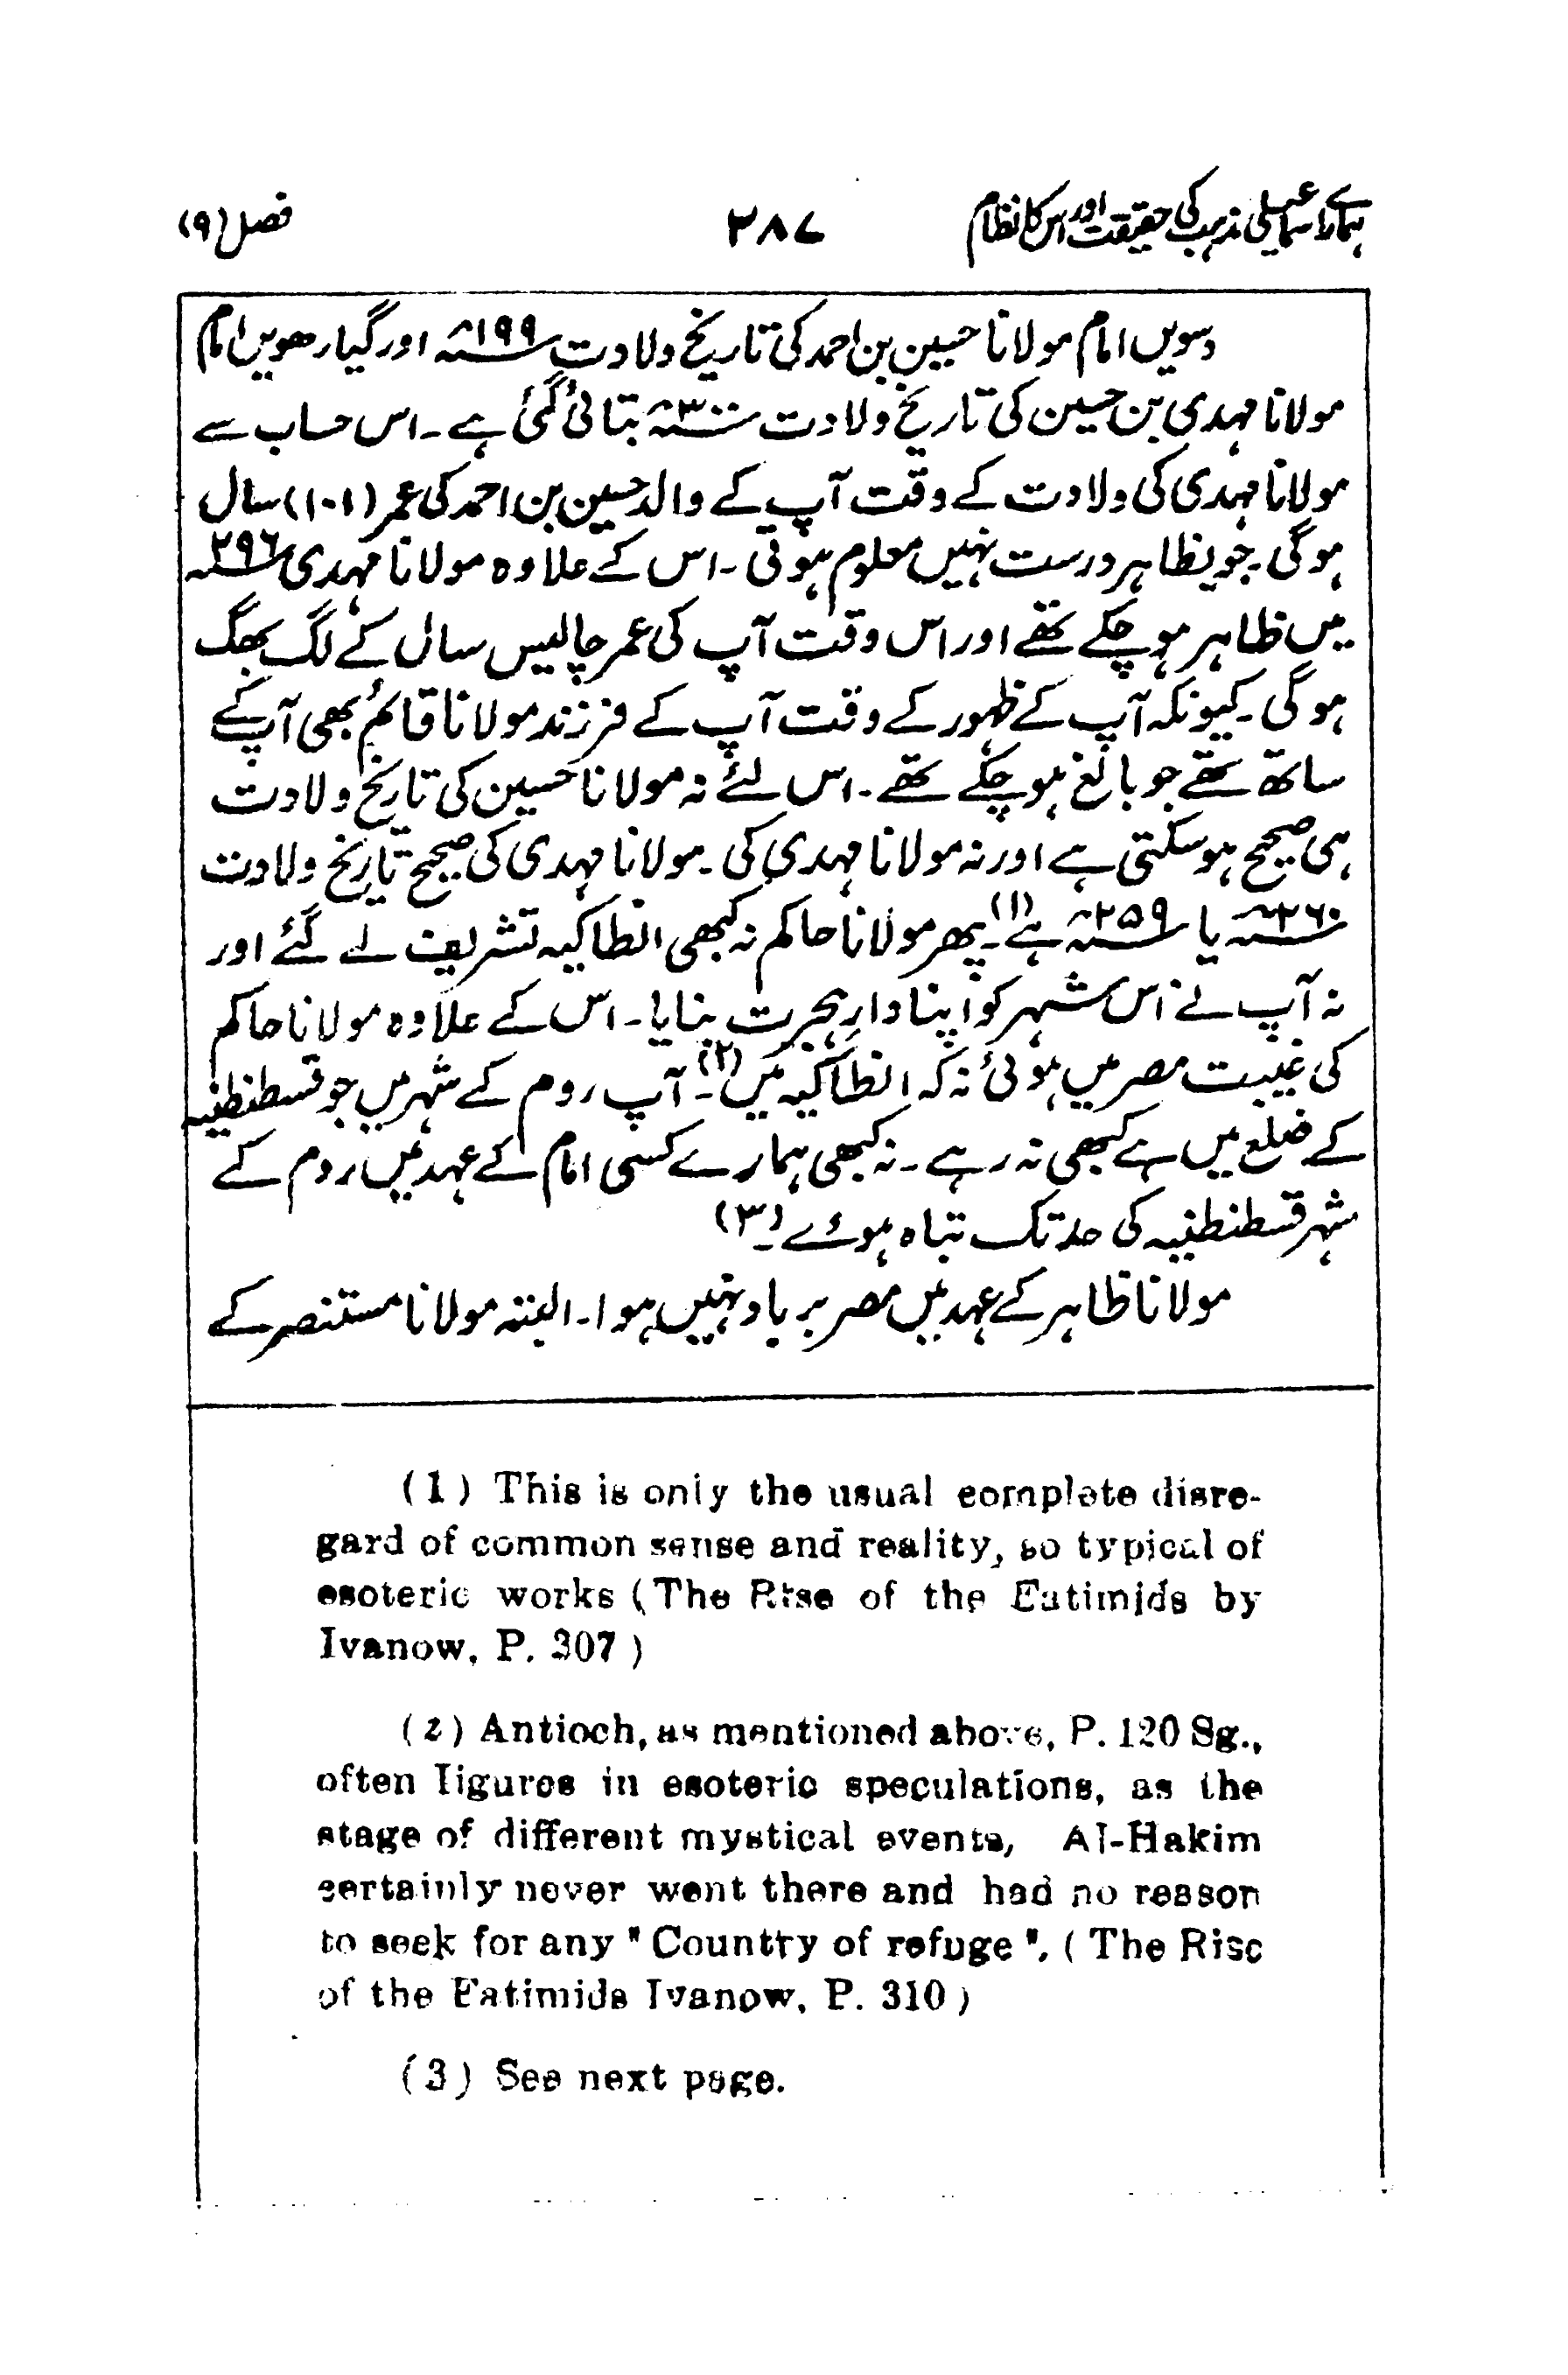 ہمارے اسماعیلی مذہب کی حقیقت اور اس کا نظام ۳۸۷ فصل (۹)
دسویں امام مولانا حسین بن احمد کی تاریخ ولادت ۱۹۹ھ اور گیارھویں امام
مولانا مہدی بن حسین کی تاریخ ولادت ۳۰۰ھ بتائی گئی ہے۔ اس حساب سے
مولانا مہدی کی ولادت کے وقت آپ کے والد حسین بن احمد کی عمر (۱۰۱) سال
ہوگی۔ جو بظاہر درست نہیں معلوم ہوتی۔ اس کے علاوہ مولانا مہدی ۲۹۶ھ
میں ظاہر ہو چکے تھے اور اس وقت آپ کی عمر چالیس سال کے لگ بھگ
ہوگی۔ کیونکہ آپ کے ظہور کے وقت آپ کے فرزند مولانا قائم بھی آپ کے
ساتھ تھے جو بالغ ہو چکے تھے۔ اس لئے نہ مولانا حسین کی تاریخ ولادت
ہی صحیح ہو سکتی ہے اور نہ مولانا مہدی کی۔ مولانا مہدی کی صحیح تاریخ ولادت
۲۶۰ھ یا ۲۵۹ھ ہے (۱)۔ پھر مولانا حاکم نہ کبھی انطاکیہ تشریف لے گئے اور
نہ آپ نے اس شہر کو اپنا دارِ ہجرت بنایا۔ اس کے علاوہ مولانا حاکم
کی غیبت مصر میں ہوئی نہ کہ انطاکیہ میں (۲)۔ آپ روم کے شہر میں جو قسطنطنیہ
کے ضلع میں ہے کبھی نہ رہے۔ نہ کبھی ہمارے کسی امام کے عہد میں روم کے
شہر قسطنطنیہ کی حد تک تباہ ہوئے۔ (۳)
مولانا ظاہر کے عہد میں مصر برباد نہیں ہوا۔ البتہ مولانا مستنصر کے
(1) This is only the usual complete disre-
gard of common sense and reality, so typical of
esoteric works (The Rise of the Fatimids by
Ivanow, P. 307)
(2) Antioch, as mentioned above, P. 120 Sg.,
often figures in esoteric speculations, as the
stage of different mystical events, Al-Hakim
certainly never went there and had no reason
to seek for any "Country of refuge". (The Rise
of the Fatimids Ivanow, P. 310)
(3) See next page.